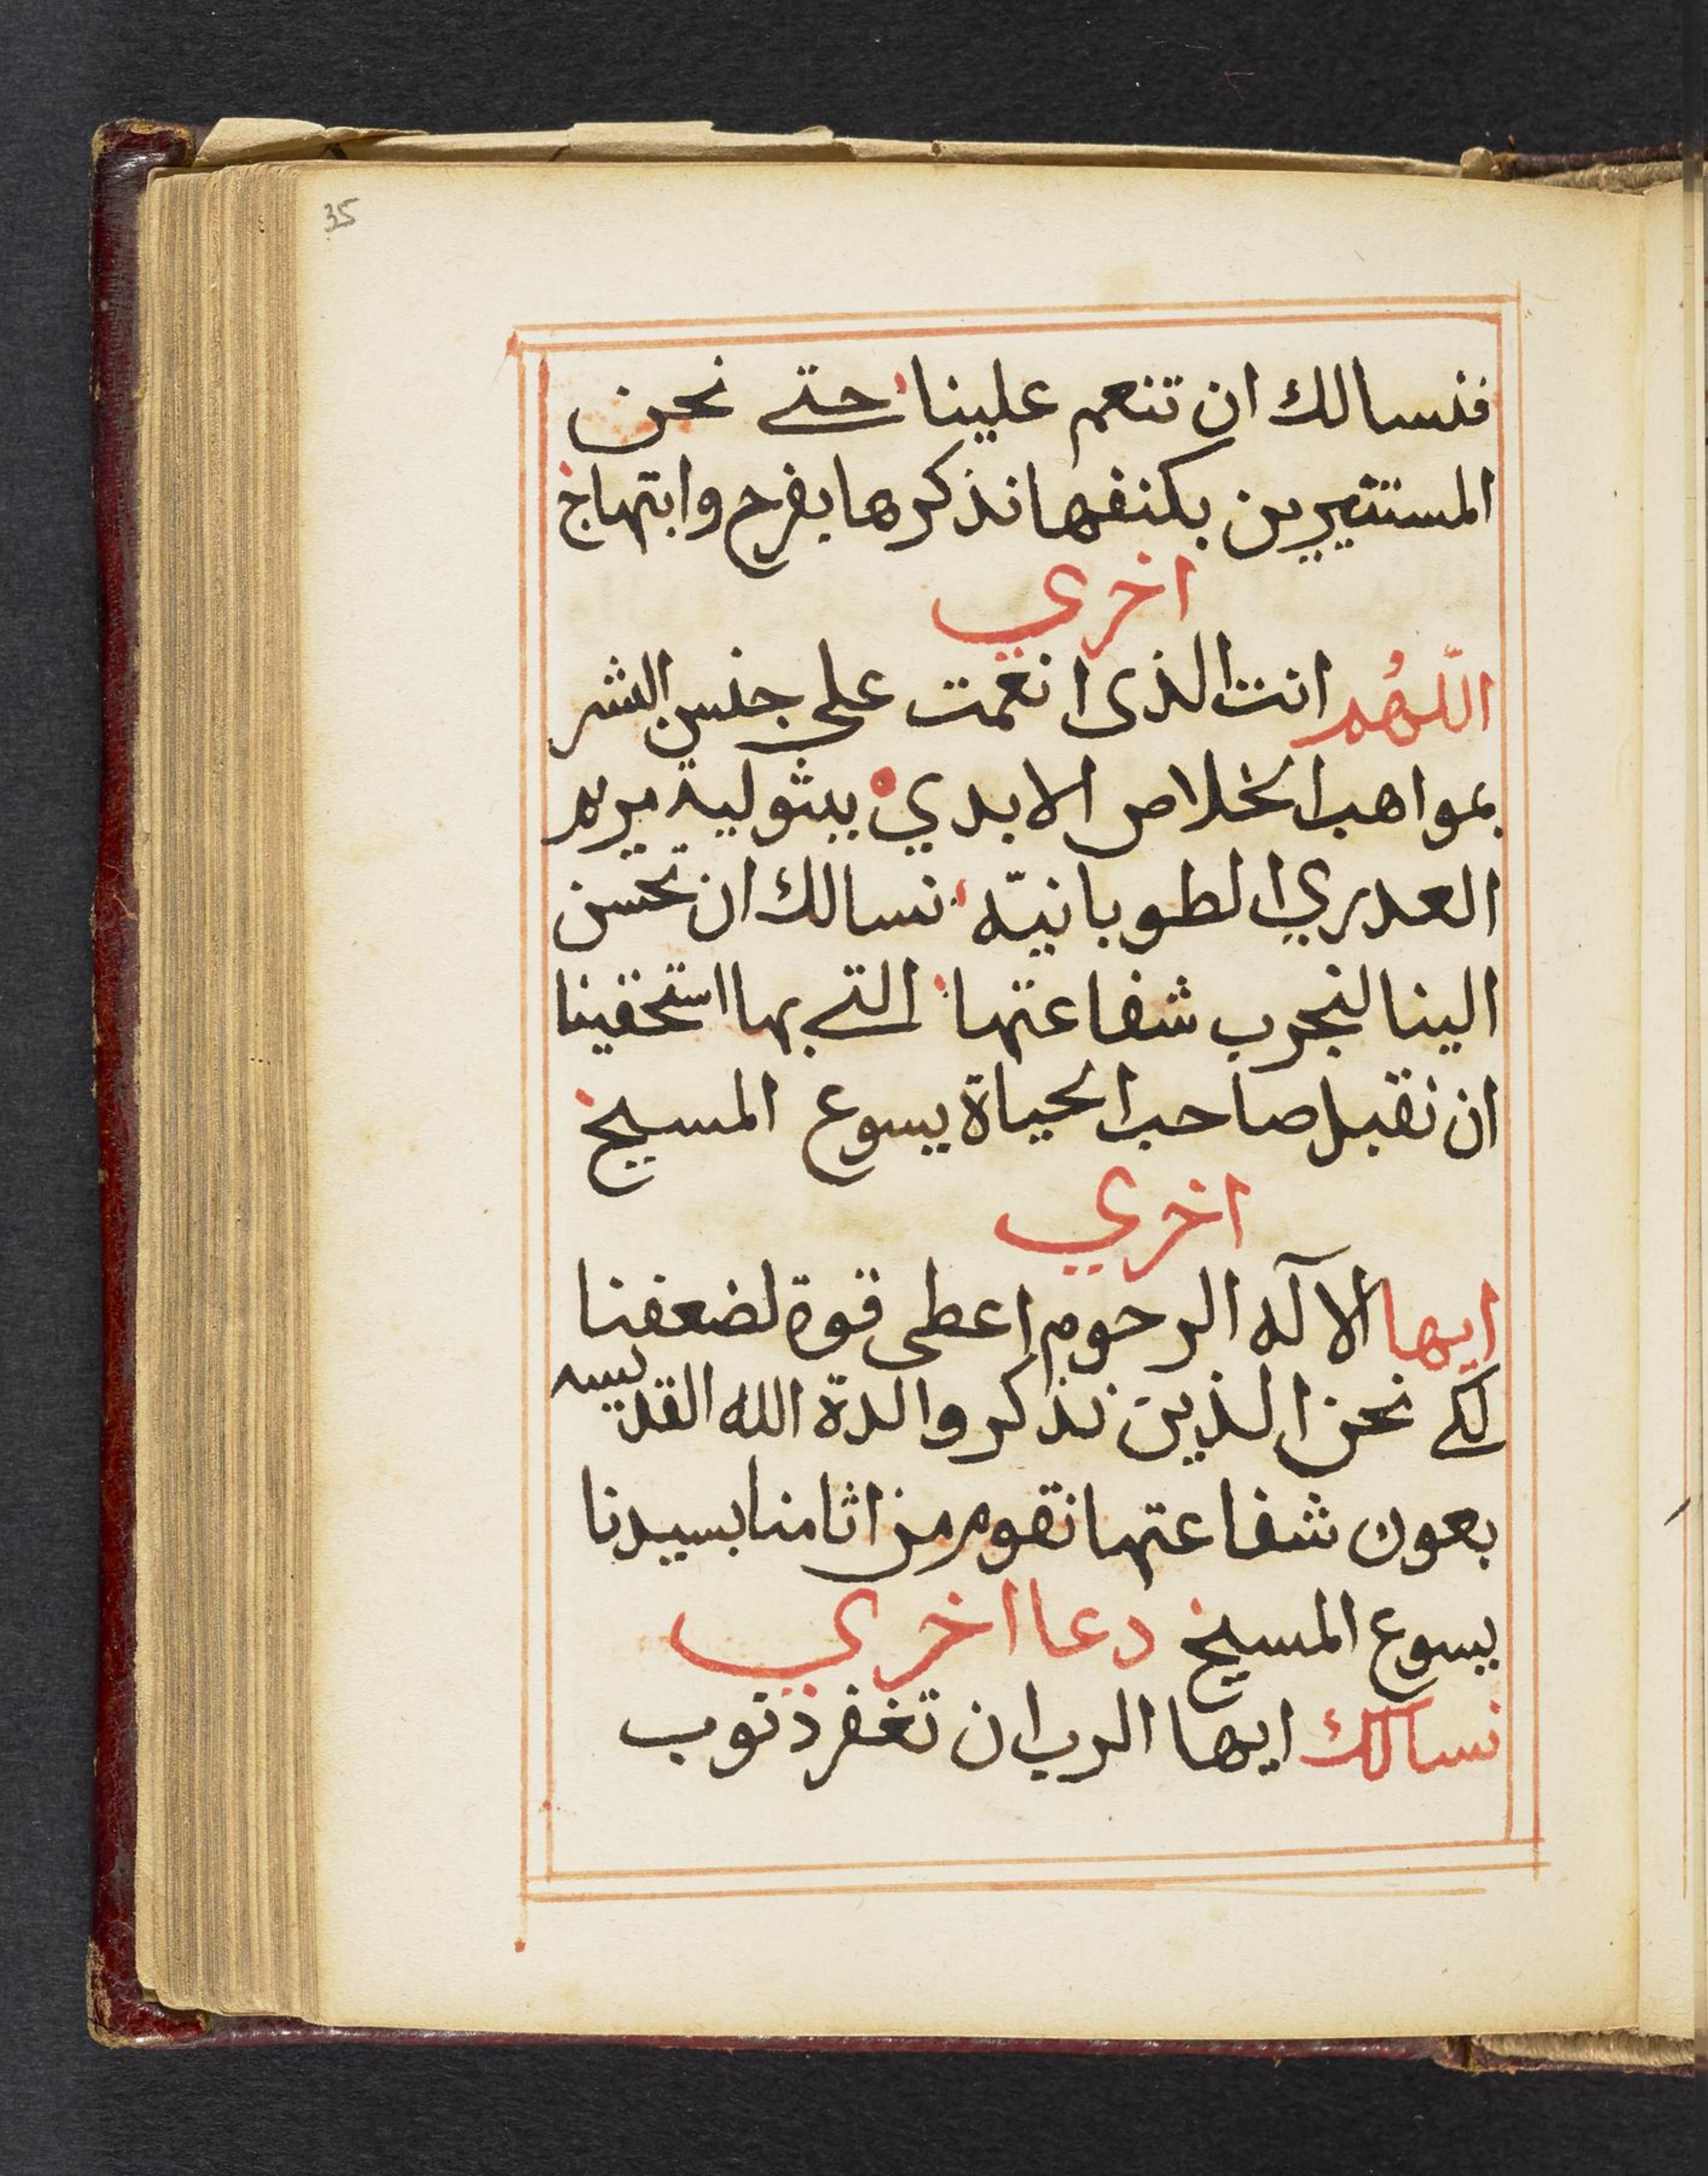 35
فنسالك ان تنعم علينا حتى نحن
المستتيرين بكنفها نذكرها بفرح وابتهاج
اخري
اللهُم انت الذى انعمت على جنس البشر
بمواهب الخلاص الابدي ببثولية مريم
العدري الطوبانيّه نسالك ان تحسن
الينا لنجرب شفاعتها التى بها استحقينا
ان نقبل صاحب الحياة يسوع المسيح
اخري
ايها الآله الرحوم اعطى قوة لضعفنا
لكى نحن الذين نذكر والدة الله القديسه
بعون شفاعتها نقوم من اثامنا بسيدنا
يسوع المسيح دعا اخري
نسالك ايها الرب ان تغفر ذنوب